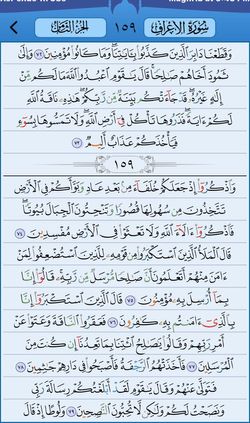 سُورَةُ الْأَعْرَافِ ١٥٩ الجُزْءُ الثَّامِنُ
وَقَطَعْنَا دَابِرَ الَّذِينَ كَذَّبُوا بِآيَاتِنَا وَمَا كَانُوا مُؤْمِنِينَ ٧٢ وَإِلَىٰ
ثَمُودَ أَخَاهُمْ صَالِحًا قَالَ يَٰقَوْمِ اعْبُدُوا اللَّهَ مَا لَكُم مِّنْ
إِلَٰهٍ غَيْرُهُ قَدْ جَاءَتْكُم بَيِّنَةٌ مِّن رَّبِّكُمْ هَٰذِهِ نَاقَةُ اللَّهِ
لَكُمْ آيَةً فَذَرُوهَا تَأْكُلْ فِي أَرْضِ اللَّهِ وَلَا تَمَسُّوهَا بِسُوءٍ
فَيَأْخُذَكُمْ عَذَابٌ أَلِيمٌ ٧٣
١٥٩
وَاذْكُرُوا إِذْ جَعَلَكُمْ خُلَفَاءَ مِن بَعْدِ عَادٍ وَبَوَّأَكُمْ فِي الْأَرْضِ
تَتَّخِذُونَ مِن سُهُولِهَا قُصُورًا وَتَنْحِتُونَ الْجِبَالَ بُيُوتًا
فَاذْكُرُوا آلَاءَ اللَّهِ وَلَا تَعْثَوْا فِي الْأَرْضِ مُفْسِدِينَ ٧٤
قَالَ الْمَلَأُ الَّذِينَ اسْتَكْبَرُوا مِن قَوْمِهِ لِلَّذِينَ اسْتُضْعِفُوا لِمَنْ
ءَامَنَ مِنْهُمْ أَتَعْلَمُونَ أَنَّ صَالِحًا مُّرْسَلٌ مِّن رَّبِّهِ قَالُوا إِنَّا
بِمَا أُرْسِلَ بِهِ مُؤْمِنُونَ ٧٥ قَالَ الَّذِينَ اسْتَكْبَرُوا إِنَّا
بِالَّذِي ءَامَنتُم بِهِ كَافِرُونَ ٧٦ فَعَقَرُوا النَّاقَةَ وَعَتَوْا عَنْ
أَمْرِ رَبِّهِمْ وَقَالُوا يَٰصَالِحُ ائْتِنَا بِمَا تَعِدُنَا إِن كُنتَ
مِنَ الْمُرْسَلِينَ ٧٧ فَأَخَذَتْهُمُ الرَّجْفَةُ فَأَصْبَحُوا فِي دَارِهِمْ جَاثِمِينَ ٧٨
فَتَوَلَّىٰ عَنْهُمْ وَقَالَ يَٰقَوْمِ لَقَدْ أَبْلَغْتُكُمْ رِسَالَةَ رَبِّي
وَنَصَحْتُ لَكُمْ وَلَٰكِن لَّا تُحِبُّونَ النَّاصِحِينَ ٧٩ وَلُوطًا إِذْ قَالَ